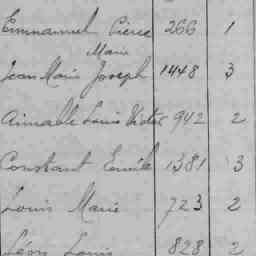 Emmanuel Pierre 266 1
Marie
Jean Marie Joseph 1448 3
Aimable Louis Victor 942 2
Constant Emile 1381 3
Louis Marie 723 2
Léon Louis 828 2